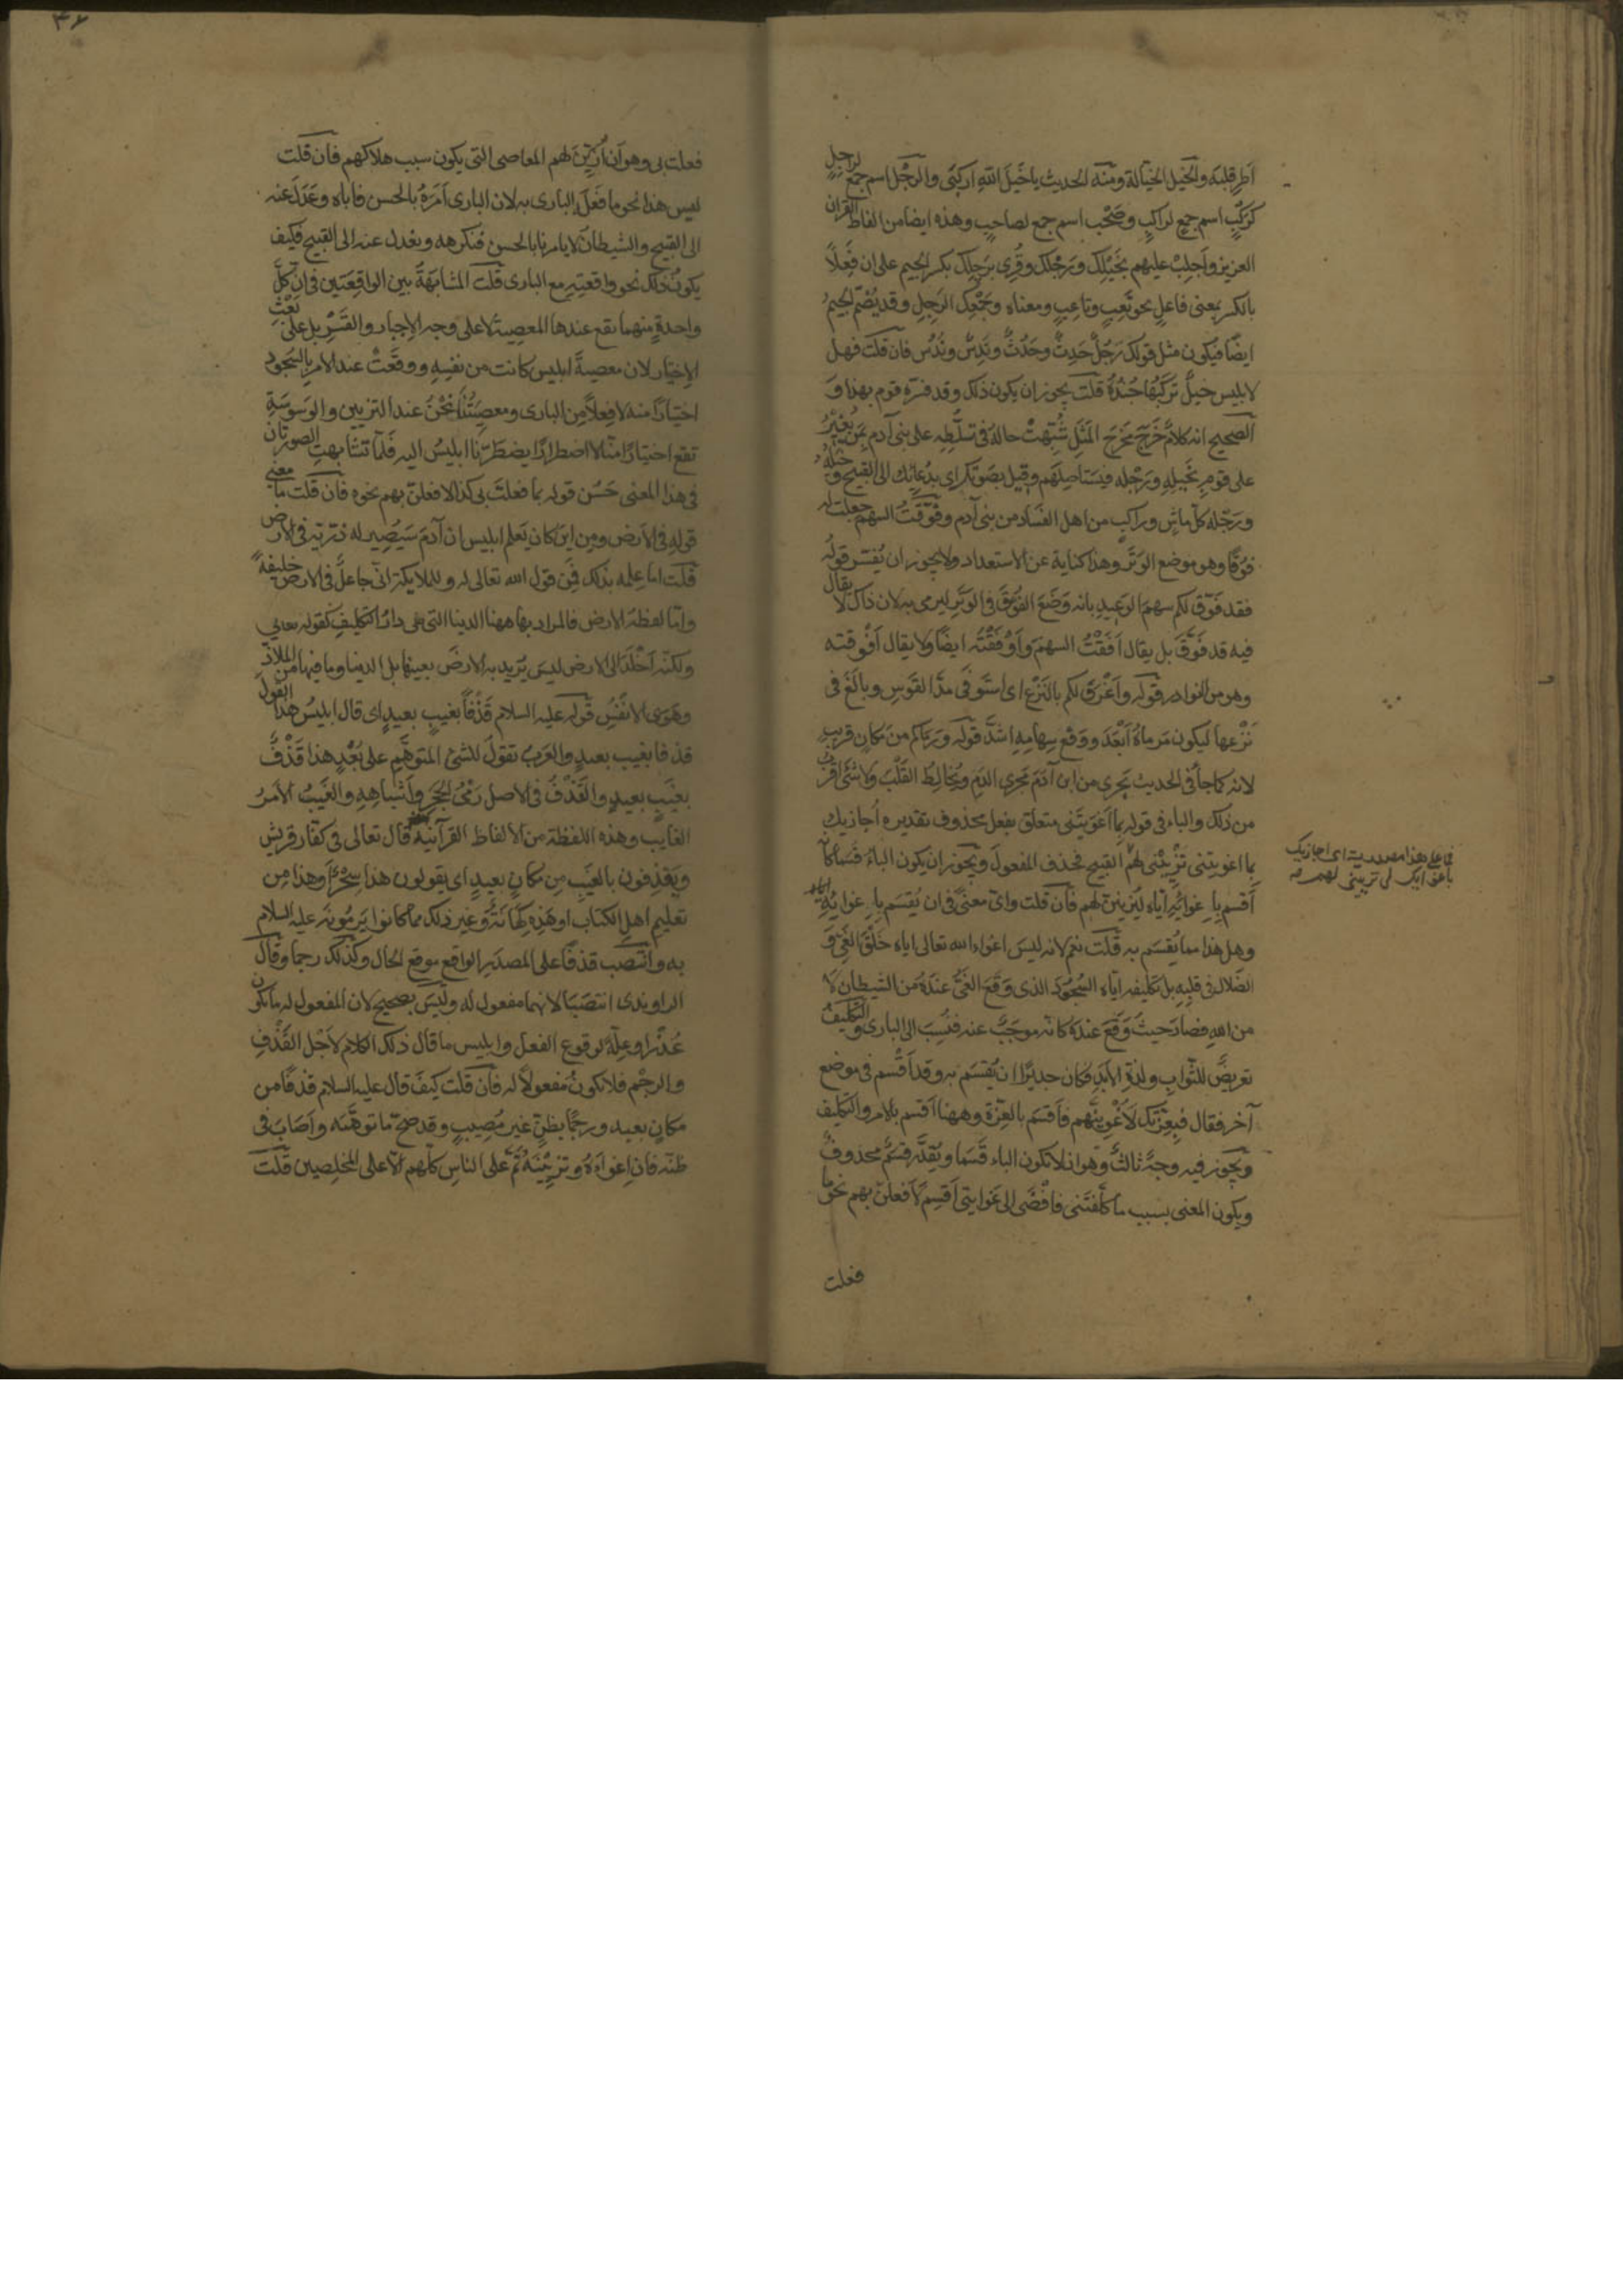 اَطِر قلبَه والخَيل الخيّالة ومنه الحديث يا خَيلَ اللّٰه اركبَى والرَّجْل اسم جمع لراجلٍ
كرَكْبٍ اسم جمع لراكبٍ وصَحْب اسم جمع لصاحبٍ وهذه ايضا من الفاظ القرآن
العزيز واَجلِبْ عليهم بخَيْلِك ورَجْلك وقُرِى برَجِلِك بكسر الجيم على ان فَعِلاً
بالكسر بمعنى فاعلٍ نحو تَعِبٍ وتاعبٍ ومعناه وجَمْعِك الرَجِل وقد يُضمّ الجيمُ
ايضًا فيكون مثل قولك رَجُلٌ حَدِثٌ وحَدُثٌ ونَدِسٌ ونَدُسٌ فان قلت فهل
لابليس خيلٌ تَركَبُها جُندُهُ قلت يجوز ان يكون ذلك وقد فسّره قوم بهذا و
الصحيح انه كلامٌ خَرَجَ مَخرَجَ المَثَلِ شُبّهتْ حالهُ فى تسلّطِهِ على بنى آدم بمَن يُغيْرُ
على قومٍ بخَيلِهِ ورَجْله فيَستاصِلُهم وقيل بصَوتك اى بدُعائك الى القبيح وخَيلُهُ
ورَجْله كلّ ماشٍ وراكبٍ من اهل الفساد من بنى آدم وفوَّقتُ السهم جعلت له
فوقًا وهو موضع الوَتَر وهذا كناية عن الاستعداد ولا يجوز ان يُفسَّر قوله
فقد فوّق لكم سهمَ الوعيدِ بانه وَضَعَ الفُوقَ فى الوَتَر ليرمى به لان ذاك لا يقال
فيه قد فَوَّقَ بل يقال اَفَقْتُ السهمَ واَوْفَقْتُه ايضًا ولا يقال اَفْوقته
وهو من النوادر قوله واَغْرَقَ لكم بالنَزْع اى استَوفَى مدَّ القَوسِ وبالَغَ فى
نَزْعها ليكون مَرماهُ اَبْعَدَ ووَقْع سِهامِهِ اشدَّ قوله ورَماكم من مكانٍ قريبٍ
لانه كما جاء فى الحديث يَجرى من ابن آدَمَ مَجرى الدَمِ ويُخالِطُ القَلْبَ ولا شئ اقرَبُ
من ذلك والباء فى قوله بما اَغوَيتَنى متعلّق بفعل محذوف تقديره اُجازيك
بما اغويتنى تزيينى لهم القبيح فحذف المفعول ويجوز ان يكون الباءُ قسَمًا كانّه
اَقسَم باِغوائِهِ ايّاه ليُزيّننّ لهم فان قلت واىّ معنىً فى ان يُقسَم باِغوائِهِ اياه
وهل هذا مما يُقسَم به قلت نعم لانه ليسَ اغواء الله تعالى اياه خَلْقَ الغَىّ و
الضَلال فى قلبِهِ بل تكليفه ايّاه السُجودَ الذى وَقَعَ الغَىُّ عندَهُ من الشيطان لا
من اللّٰهِ فصارَ حيثُ وَقَعَ عندهُ كانّه مُوجَبٌ عنه فنُسِبَ الى البارى والتكليفُ
تعريضٌ للثوابِ ولذةِ الاَبَدِ فكان جديرًا ان يُقسَمَ به وقد اَقْسَم فى موضع
آخر فقال فبِعِزّتِك لَاُغْوِينّهم فاَقسَمَ بالعِزّة وههنا اَقسم بالامر والتكليف
ويجوز فيه وجهٌ ثالثٌ وهو ان لا تكون الباء قَسَما ويُقدَّر قسَمٌ محذوفٌ
ويكون المعنى بسبب ما كلّفتَنى فاَفْضَى الى غَوايتى اُقسِم لَافعلنّ بهم نحوَ ما
فعلت
فما على هذا مصدرية اى اجازيك
باغوائك لى تزيينى لهم
فعلت بى وهو اَن اُزيّنَ لهم المعاصى التى يكون سبب هلاكهم فان قلت
ليس هذا نحو ما فَعَلَ البارى به لان البارى اَمَرَهُ بالحسن فاباه وعَدَلَ عنه
الى القبيح والشيطانُ لا يامرنا بالحسن فنكرهه ونعدل عنه الى القبيح فكيف
يكونُ ذلك نحو واقعتِهِ مع البارى قلت المشابَهَةُ بين الواقعَتَين فى انّ كلَّ
واحدةٍ منهما تقع عندها المعصِيَةُ لا على وجه الاِجبار والقَسْرِ بل على
الاِختيار لان معصيةَ ابليس كانت من نفسِهِ ووقَعَتْ عند الامر بالسُجود
اختيارًا منه لا فِعلاً مِن البارى ومعصِيَتُنا نحْنُ عند التزيين والوَسْوَسةِ
تقع اختيارًا منّا لا اضطرارًا يضطَرّنا ابليسُ اليه فلمّا تشابهتِ الصورتان
فى هذا المعنى حَسُنَ قوله بما فعلتَ بى كذا لافعلنّ بهم نحوه فان قلت ما معنى
قوله فى الاَرض ومِن اينَ كان يَعلم ابليس ان آدَمَ سَيَصير له ذريّة فى الارض
قلت اما عِلمه بذلك فمِن قول الله تعالى له وللملايكة انّى جاعلٌ فى الارض خليفةً
وامّا لفظة الارض فالمراد بها ههنا الدنيا التى هى دارُ التكليفِ كقوله تعالى
ولكنّه اَخْلَدَ الى الارض ليس يُريد به الارضَ بعينها بل الدنيا وما فيها من الملاذّ
وهَوَى الانفُسِ قوله عليه السلام قَذْفًا بغيبٍ بعيدٍ اى قال ابليسُ هذا القولَ
قذفا بغيب بعيدٍ والعَربُ تقولُ للشئ المتوهَّم على بُعْدٍ هذا قَذْفٌ
بغَيبٍ بعيدٍ والقَذْفُ فى الاصل رَمْىُ الحَجَر واَشباهِهِ والغَيبُ الاَمرُ
الغايب وهذه اللفظة من الالفاظ القرآنية قال تعالى فى كفّار قريش
ويَقذِفون بالغَيب مِن مكانٍ بعيدٍ اى يقولون هذا سِحْرٌ او هذا مِن
تعليم اهل الكتاب او هَذِه كِهانَةٌ وغير ذلك مما كانوا يَرمُونَه عليه السلام
به وانتصب قذفًا على المصدَرِ الواقع موقع الحال وكذلك رجما وقال
الراوندى انتصَبَا لانهما مفعول له وليسَ بصحيح لان المفعول له ما يكون
عُذْرا وعِلّةً لوقوع الفعل وابليس ما قال ذلك الكلام لاَجْل القَذْفِ
والرجْم فلا يكونُ مفعولاً له فان قلت كيفَ قال عليه السلام قذفًا من
مكانٍ بعيد ورجمًا بظنّ غير مُصيبٍ وقد صحّ ما توهَّمَه واَصَابَ فى
ظنّه فان اِغواءَهُ وتزيينَهُ تمَّ على الناسِ كلّهم الّا على المخلِصين قلت